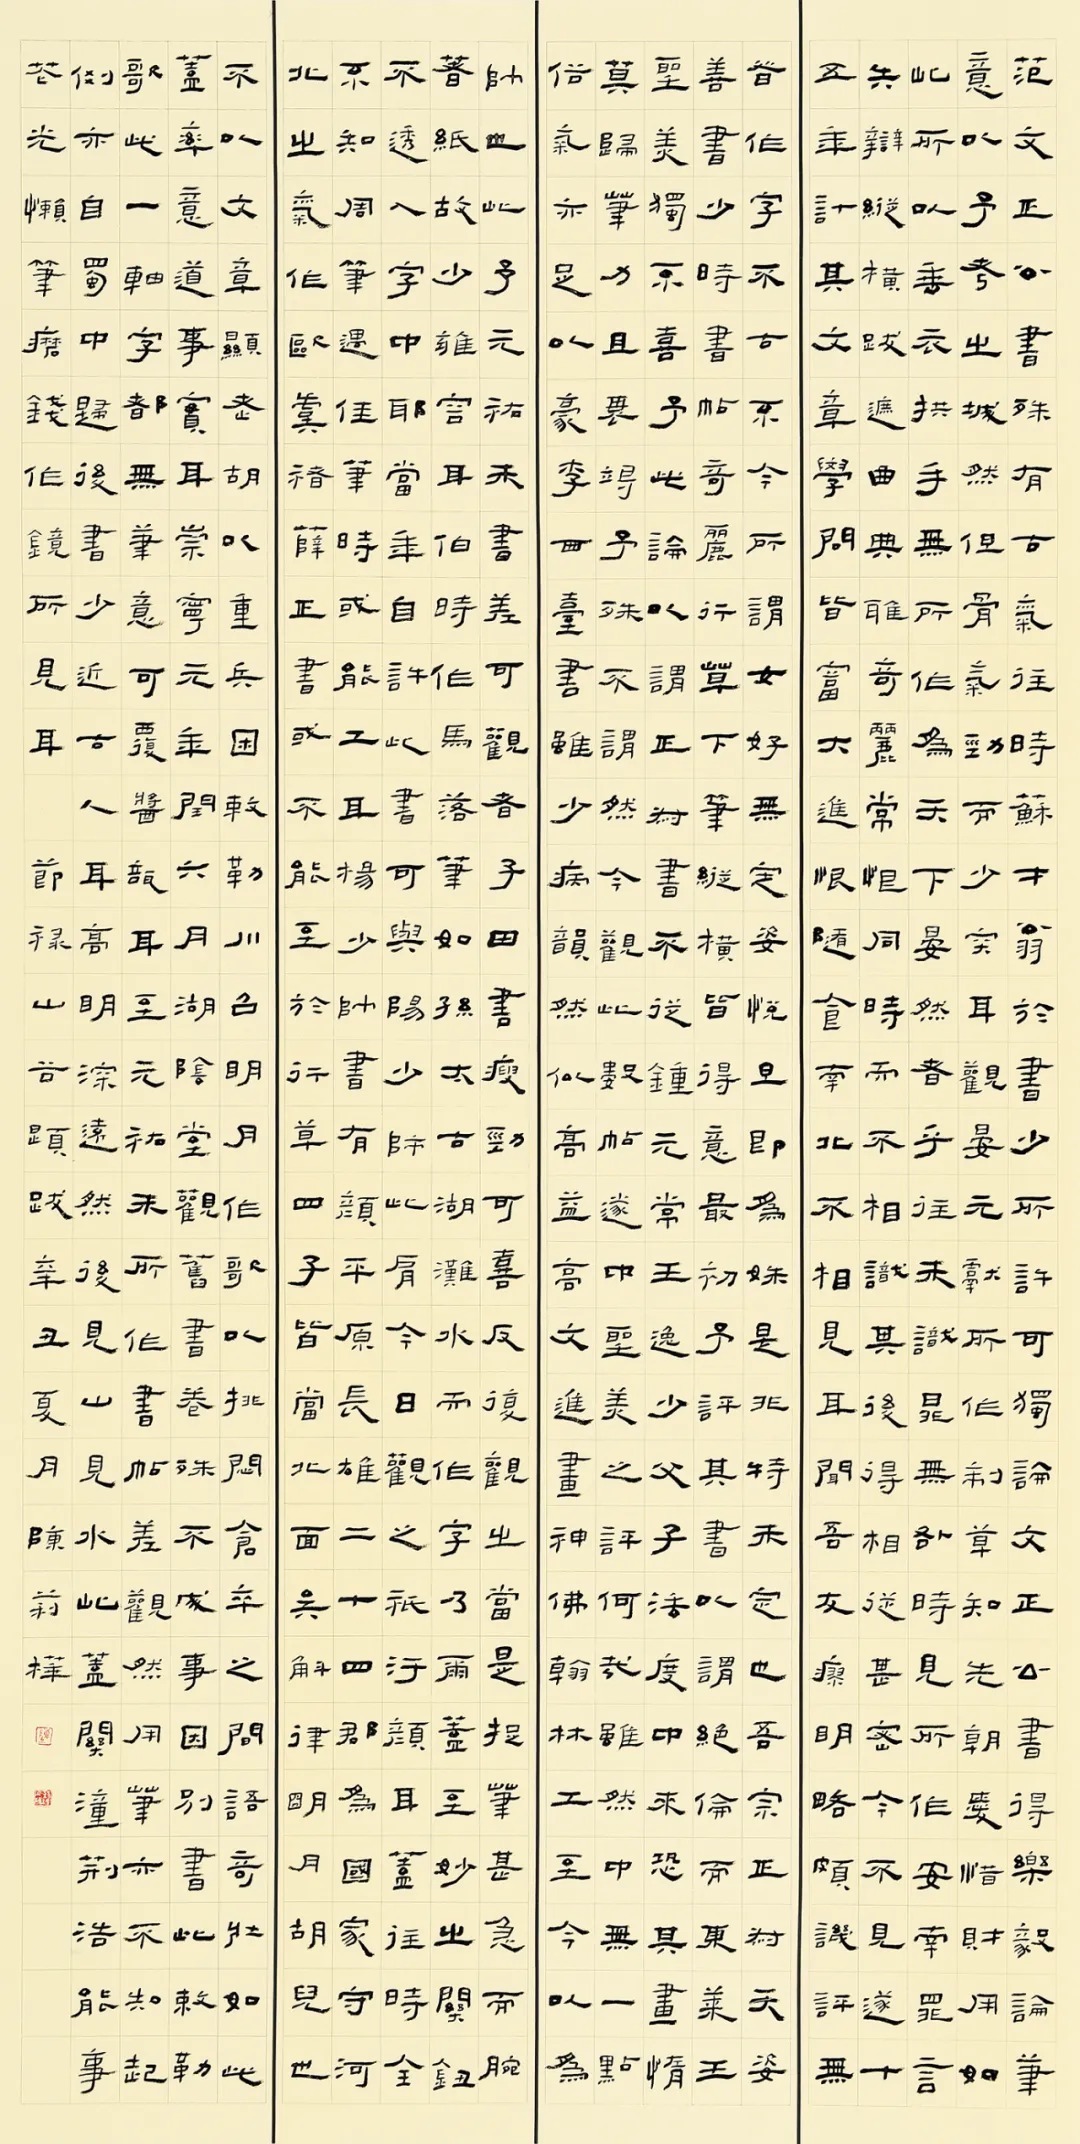 范文正公書殊有古氣往時蘇才翁於書少所許可獨論文正公書得樂毅論筆
意以予考之城然但骨氣勁而少突耳觀晏元獻所作制草知先朝愛惜財用如
此所以垂衣拱手無所作為天下晏然者乎往未識晁無咎時見所作安南罪言
失辯縱橫跋遮曲典雅奇麗常怛同時而不相識其後得相從甚密今不見遂十
五年計其文章學問皆富大進恨隨食南北不相見耳聞吾友廖明略頗譏評無
咎作字不古不今所謂女好無定姿悅目即為姝是非特未定也吾宗正叔天姿
善書少時書帖奇麗行草下筆縱橫皆得意最初予評其書以謂絕倫而東萊王
聖美獨不喜予此論以謂正叔書不從鍾元常王逸少父子法度中來恐其畫惰
莫歸筆力且畏竭予殊不謂然今觀此數帖遂中聖美之評何哉雖然中無一點
俗氣亦足以豪李西臺書雖少病韻然似高益高文進畫神佛翰林工至今以為
師也此予元祐末書差可觀者子田書瘦勁可喜反復觀之當是捉筆甚急而腕
著紙故少雍容耳伯時作馬落筆如孫太古湖灘水而作字乃爾蓋至妙之關鈕
不透入字中耶當年自許此書可與陽少師比肩今日觀之祇汙顏耳蓋往時全
不知周筆遇佳筆時或能工耳楊少師書有顏平原長雄二十四郡為國家守河
北之氣作歐虞褚薛正書或不能至於行草四子皆當北面吴斛律明月胡兒也
不以文章顯老胡以重兵困敕勒川召明月作歌以排悶倉卒之間語奇壯如此
蓋率意道事實耳崇寧元年閏六月湖陰堂觀舊書卷殊不成事因別書此敕勒
歌此一軸字都無筆意可覆醬瓿耳至元祐末所作書帖差觀然用筆亦不知起
倒亦自蜀中歸後書少近古人耳高明深遠然後見山見水此蓋關潼荊浩能事
花光懶筆磨錢作鏡所見耳 節祿山谷題跋辛丑夏月陳莉樺